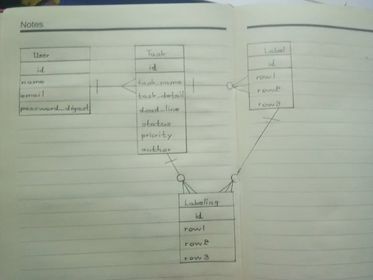 Notes
User
id
name
email
password_digest
Task
id
task_name
task_detail
dead_line
status
priority
author
Label
id
row1
row2
row3
Labeling
id
row1
row2
row3